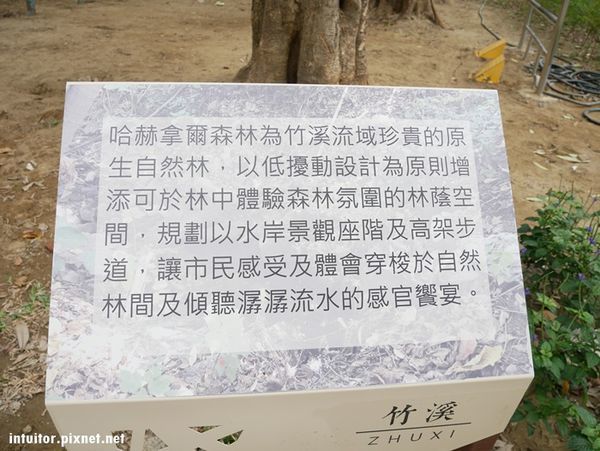 哈赫拿爾森林為竹溪流域珍貴的原
生自然林，以低擾動設計為原則增
添可於林中體驗森林氛圍的林蔭空
間，規劃以水岸景觀座階及高架步
道，讓市民感受及體會穿梭於自然
林間及傾聽潺潺流水的感官饗宴。
竹溪
ZHUXI
intuitor.pixnet.net